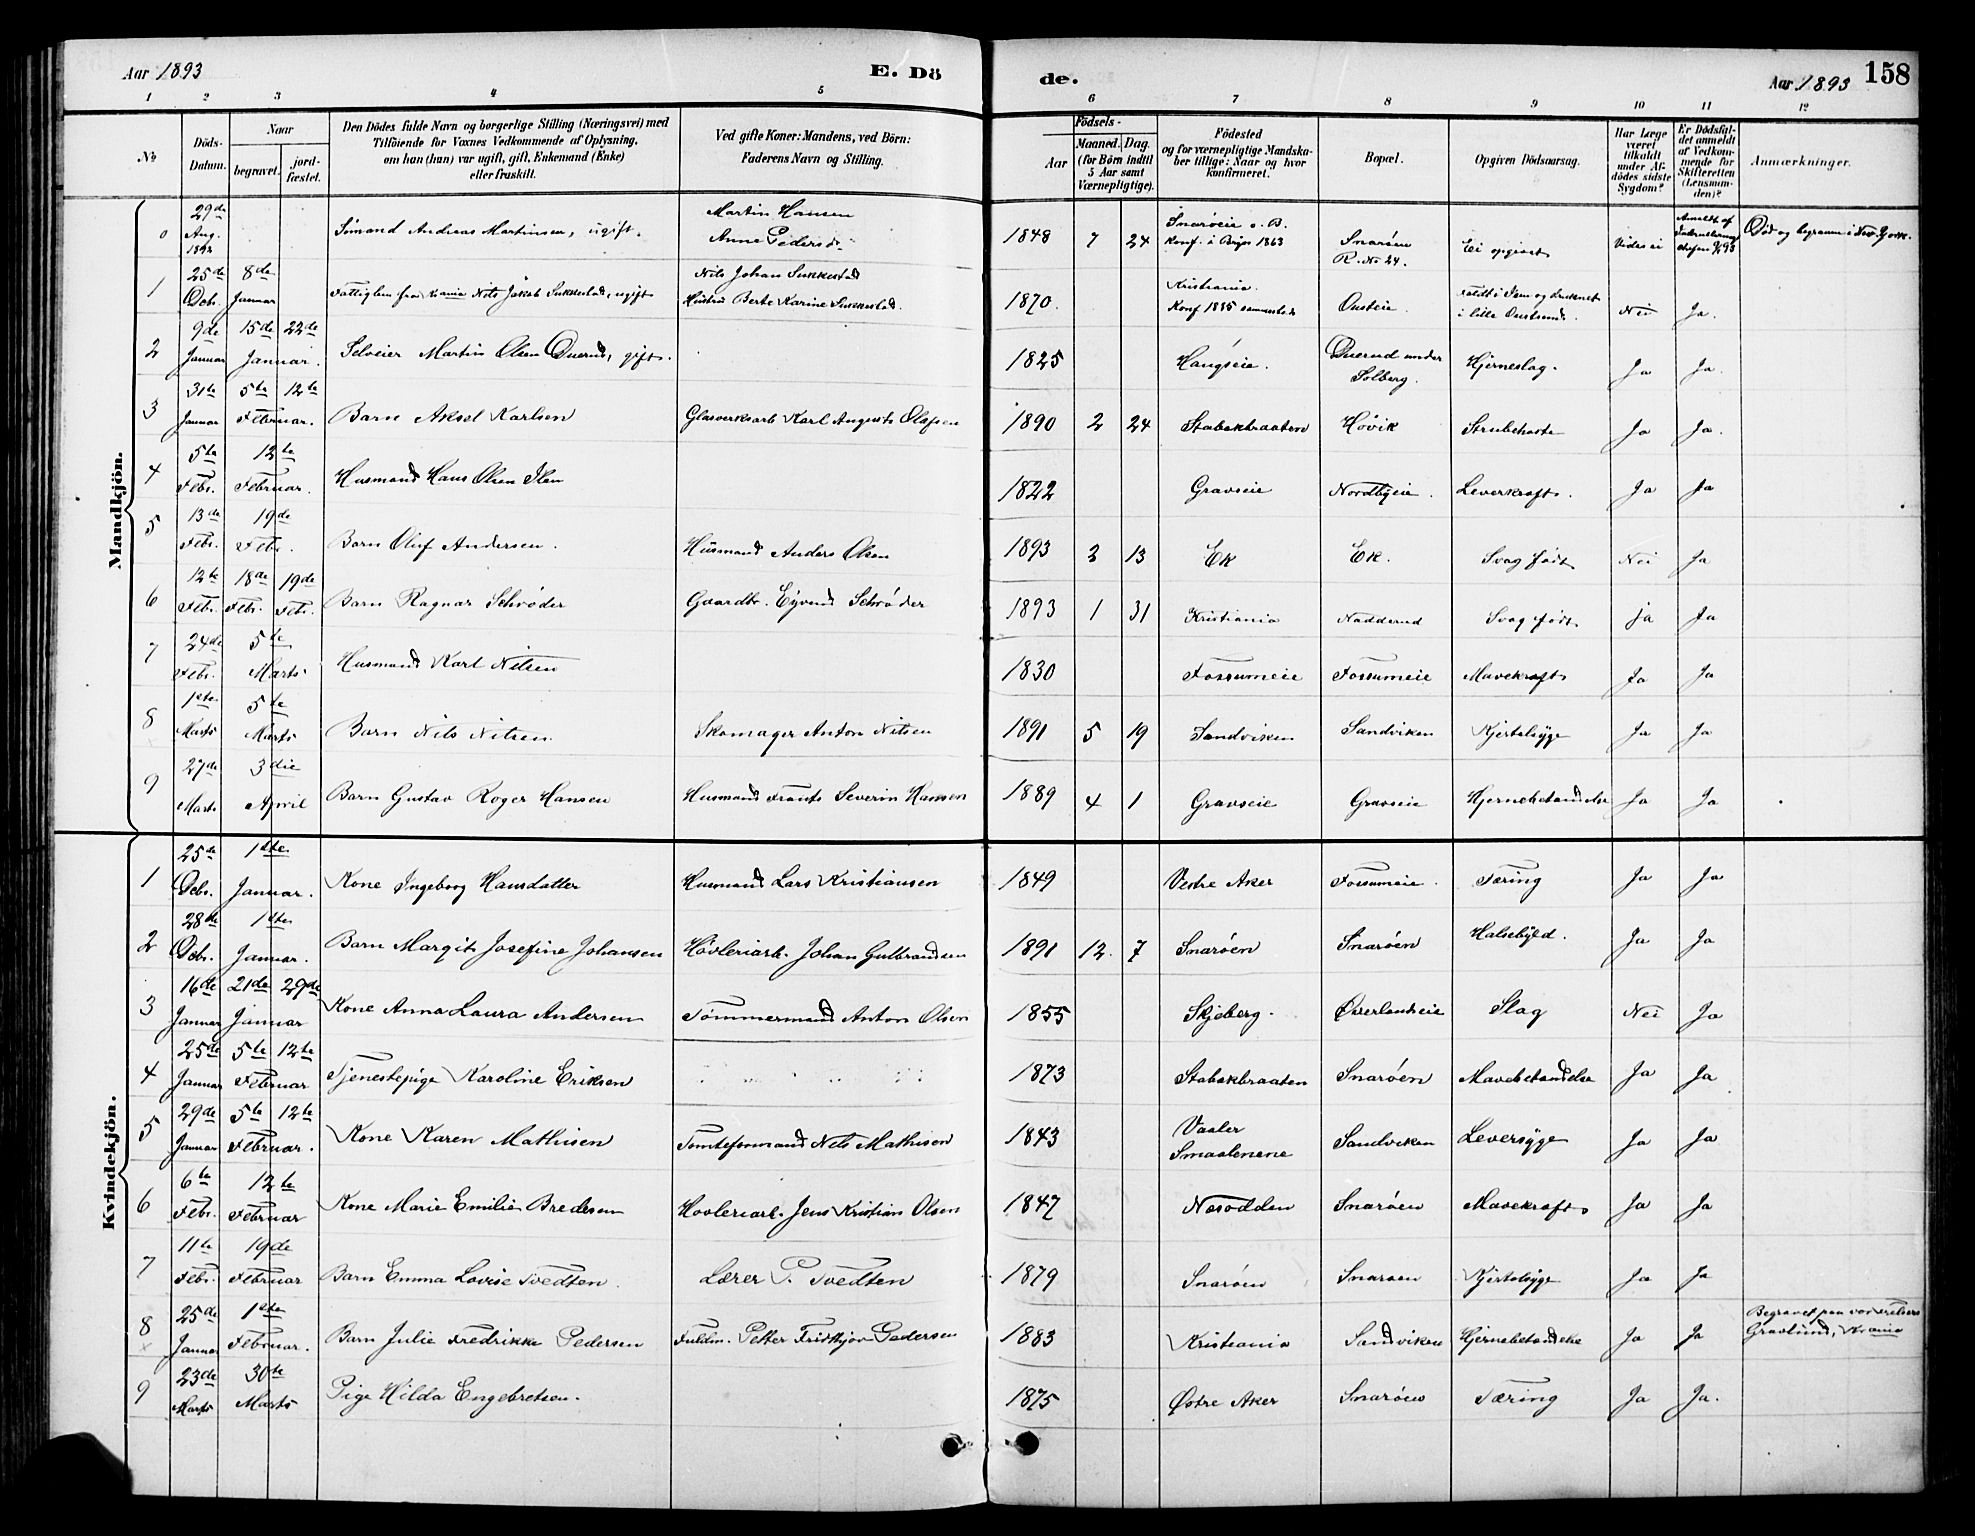 Aar 1893
E. Dö
de.
Aar 1893
158
1 2 3 4 5 6 7 8 9 10 11 12
No
Döds-Datum.
Naar
begravet.
jord-fæstet.
Den Dödes fulde Navn og borgerlige Stilling (Næringsvei) med
Tilföiende for Voxnes Vedkommende af Oplysning,
om han (hun) var ugift, gift, Enkemand (Enke)
eller fraskilt.
Ved gifte Koner: Mandens, ved Börn:
Faderens Navn og Stilling.
Födsels-
Aar
Maaned. Dag.
(for Börn indtil
5 Aar samt
Værnepligtige).
Födested
og for værnepligtige Mandska-
ber tillige: Naar og hvor
konfirmeret.
Bopæl.
Opgiven Dödsaarsag.
Har Læge
været
tilkaldt
under Af-
dödes sidste
Sygdom?
Er Dödsfal-
det anmeldt
af Vedkom-
mende for
Skifteretten
(Lensman-
den)?
Anmærkninger.
Mandkjön.
0 29de Aug. 1892 Sömand Andreas Martinsen, ugift. Martin Hansen Anne Pedersd. 1848 7 24 Snarøeie Ø. B. Konf. i 1863 Snarøen R. No 24. Ei opgivet Vides ei Anmeldt af Død og begraven i New York.
1 25de Dcb. 8de Januar Fattiglem fra Krania Nils Jakob Sukkestad, ugift Nils Johan Sukkestad Hustru Berte Karine Sukkestad. 1870. Kristiania. Konf 1885 sammesteds Ousteie. Faldt i Isen og druknet i lille Nei Ja.
2 9de Januar 15de 22de Januar. Selveier Martin Olsen Duerud, gift. 1825 Haugseie. Duerud under Solberg. Hjerneslag. Ja Ja.
3 31te Januar 5te 12te Februar. Barn Aksel Karlsen Glasverksarb Karl August Olafsen 1890 2 24 Stabekbraaten Høvik Strubehoste Ja Ja.
4 5te Febr. 12te Februar. Husmand Hans Olsen Ilen 1822 Gravseie Nordbyeie. Leverkræft. Ja Ja
5 13de Febr. 19de Febr. Barn Oluf Andersen. Husmand Anders Olsen 1893 2 13 Ek Ek. Svag født Nei Ja
6 12te Febr. 18de Febr. 19de Febr. Barn Ragnar Schrøder Gaardbr. Eyvind Schrøder 1893 1 31 Kristiania Nadderud Svag født Ja Ja
7 24de Febr. 5te Marts Husmand Karl Nilsen 1830 Fossumeie Fossumeie Mavekræft Ja Ja
8 1ste Marts 5te Marts Barn Nils Nilsen Skomager Anton Nilsen 1891 5 19 Sandviken Sandviken Kjertelsyge Ja Ja
9 27de Marts 3die April Barn Gustav Roger Hansen Husmand Frants Severin Hansen 1889 4 1 Gravseie Gravseie Hjernebetændelse Ja Ja
Kvindekjön.
1 25de Dcbr. 1ste Januar. Kone Ingeborg Hansdatter Husmand Lars Kristiansen 1849 Vestre Aker Fossumeie. Tæring Ja Ja
2 28de Dcbr. 1ste Januar. Barn Margit Josefine Johansen Høvleriarb. Johan Gulbrandsen 1891 12. 7 Snarøen Snarøen Halsebyld. Ja Ja
3 16de Januar 21de 29de Januar Kone Anna Laura Andersen Tømmermand Anton Olsen 1855 Skjeberg. Østerlandseie Slag Nei Ja
4 25de Januar 5te 12te Februar Tjenestepige Karoline Eriksen 1873 Stabekbraaten Snarøen Mavebetændelse Ja Ja
5 29de Januar 5te 12te Februar. Kone Karen Mathisen Tomteformand Nils Mathisen 1843 Vaaler Smaalenene Sandviken Leversyge Ja Ja
6 6te Febr. 12te Februar Kone Marie Emilie Bredesen Høvleriarb. Jens Kristian Olsen 1847 Næsodden Snarøen Mavekræft Ja Ja
7 11te Febr. 19de Februar Barn Emma Lovise Tvedten. Lærer P. Tvedten 1879 Snarøen Snarøen Kjertelsyge Ja Ja
8 25de Januar 1ste Februar. Barn Julie Fredrikke Pedersen Fuldm. Petter Fridthjov Pedersen 1883 Kristiania Sandviken Hjernebetændelse Ja Ja Begravet paa vor Frelsers Gravlund, Krania
9 23de Marts 30te Marts Pige Hilda Engebretsen. 1875 Østre Aker Snarøen Tæring Ja Ja.